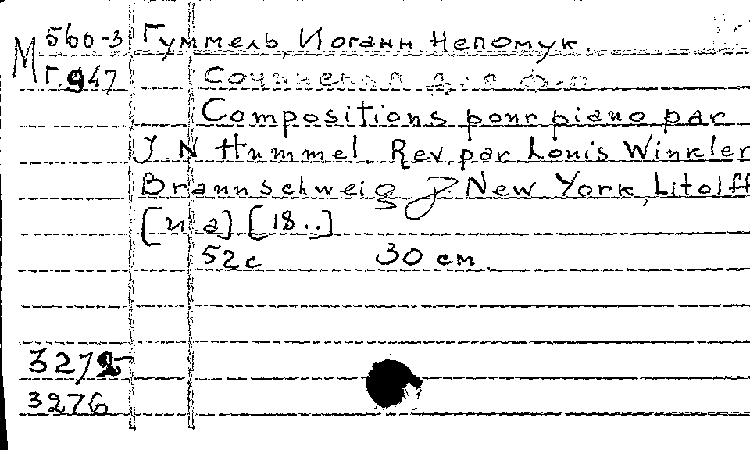 М 560-3 Гуммель, Иоганн Непомук.
Г.947 Сочинения для ф-п
Compositions pour piano par
J. N Hummel. Rev. par Louis Winkler
Braunschweig New York, Litolff
[и а] [18..]
52с 30 см.
3275
3276